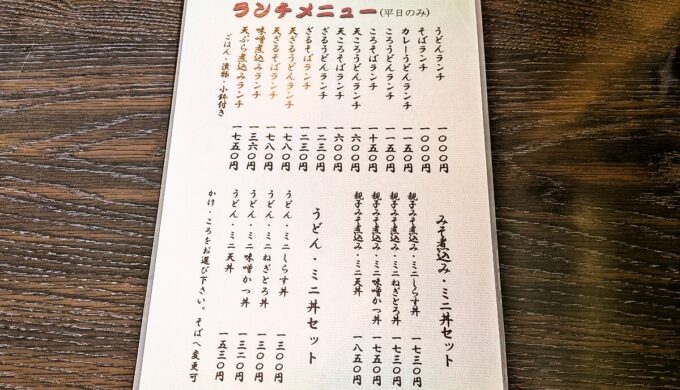 ランチメニュー(平日のみ)
うどんランチ 一〇〇〇円
そばランチ 一〇〇〇円
カレーうどんランチ 一一五〇円
ころうどんランチ 一一五〇円
ころそばランチ 一一五〇円
天ころうどんランチ 一六〇〇円
天ころそばランチ 一六〇〇円
ざるうどんランチ 一二三〇円
ざるそばランチ 一二三〇円
天ざるうどんランチ 一七八〇円
天ざるそばランチ 一七八〇円
味噌煮込みランチ 一三六〇円
天ぷら煮込みランチ 一七五〇円
ごはん・漬物・小鉢付き
みそ煮込み・ミニ丼セット
親子みそ煮込み・ミニしらす丼 一七三〇円
親子みそ煮込み・ミニねぎとろ丼 一七三〇円
親子みそ煮込み・ミニ味噌かつ丼 一七五〇円
親子みそ煮込み・ミニ天丼 一八五〇円
うどん・ミニ丼セット
うどん・ミニしらす丼 一三〇〇円
うどん・ミニねぎとろ丼 一三〇〇円
うどん・ミニ味噌かつ丼 一三二〇円
うどん・ミニ天丼 一五三〇円
かけ・ころをお選び下さい。そばへ変更可